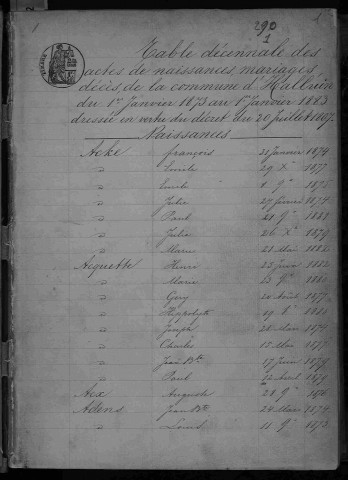 290
1
Table décennale des
actes de naissances, mariages,
décès, de la commune d'Halluin
du 1er Janvier 1873 au 1er Janvier 1883
dressée en vertu du décret du 20 juillet 1807.
Naissances
Acke François 22 Janvier 1874
" Emile 29 Xbre 1877
" 1 9bre
" Julie 27 Janvier 1874
" Paul 21 9bre
" Julie 26 Xbre 1879
" Marie 21 Mai 1882
Acquette Henri 25 Juin 1882
" Marie 9bre
" Gery Août 1877
" Hippolyte 19
" Joseph 26 Mai 1874
" Charles 12 Mai 1877
" Jean Bte 17 Juin 1879
" Paul Avril 1879
Aex Auguste 21 9bre 1876
Adens Jean Bte 24 Mai 1874
" Louis 11 9bre 1873